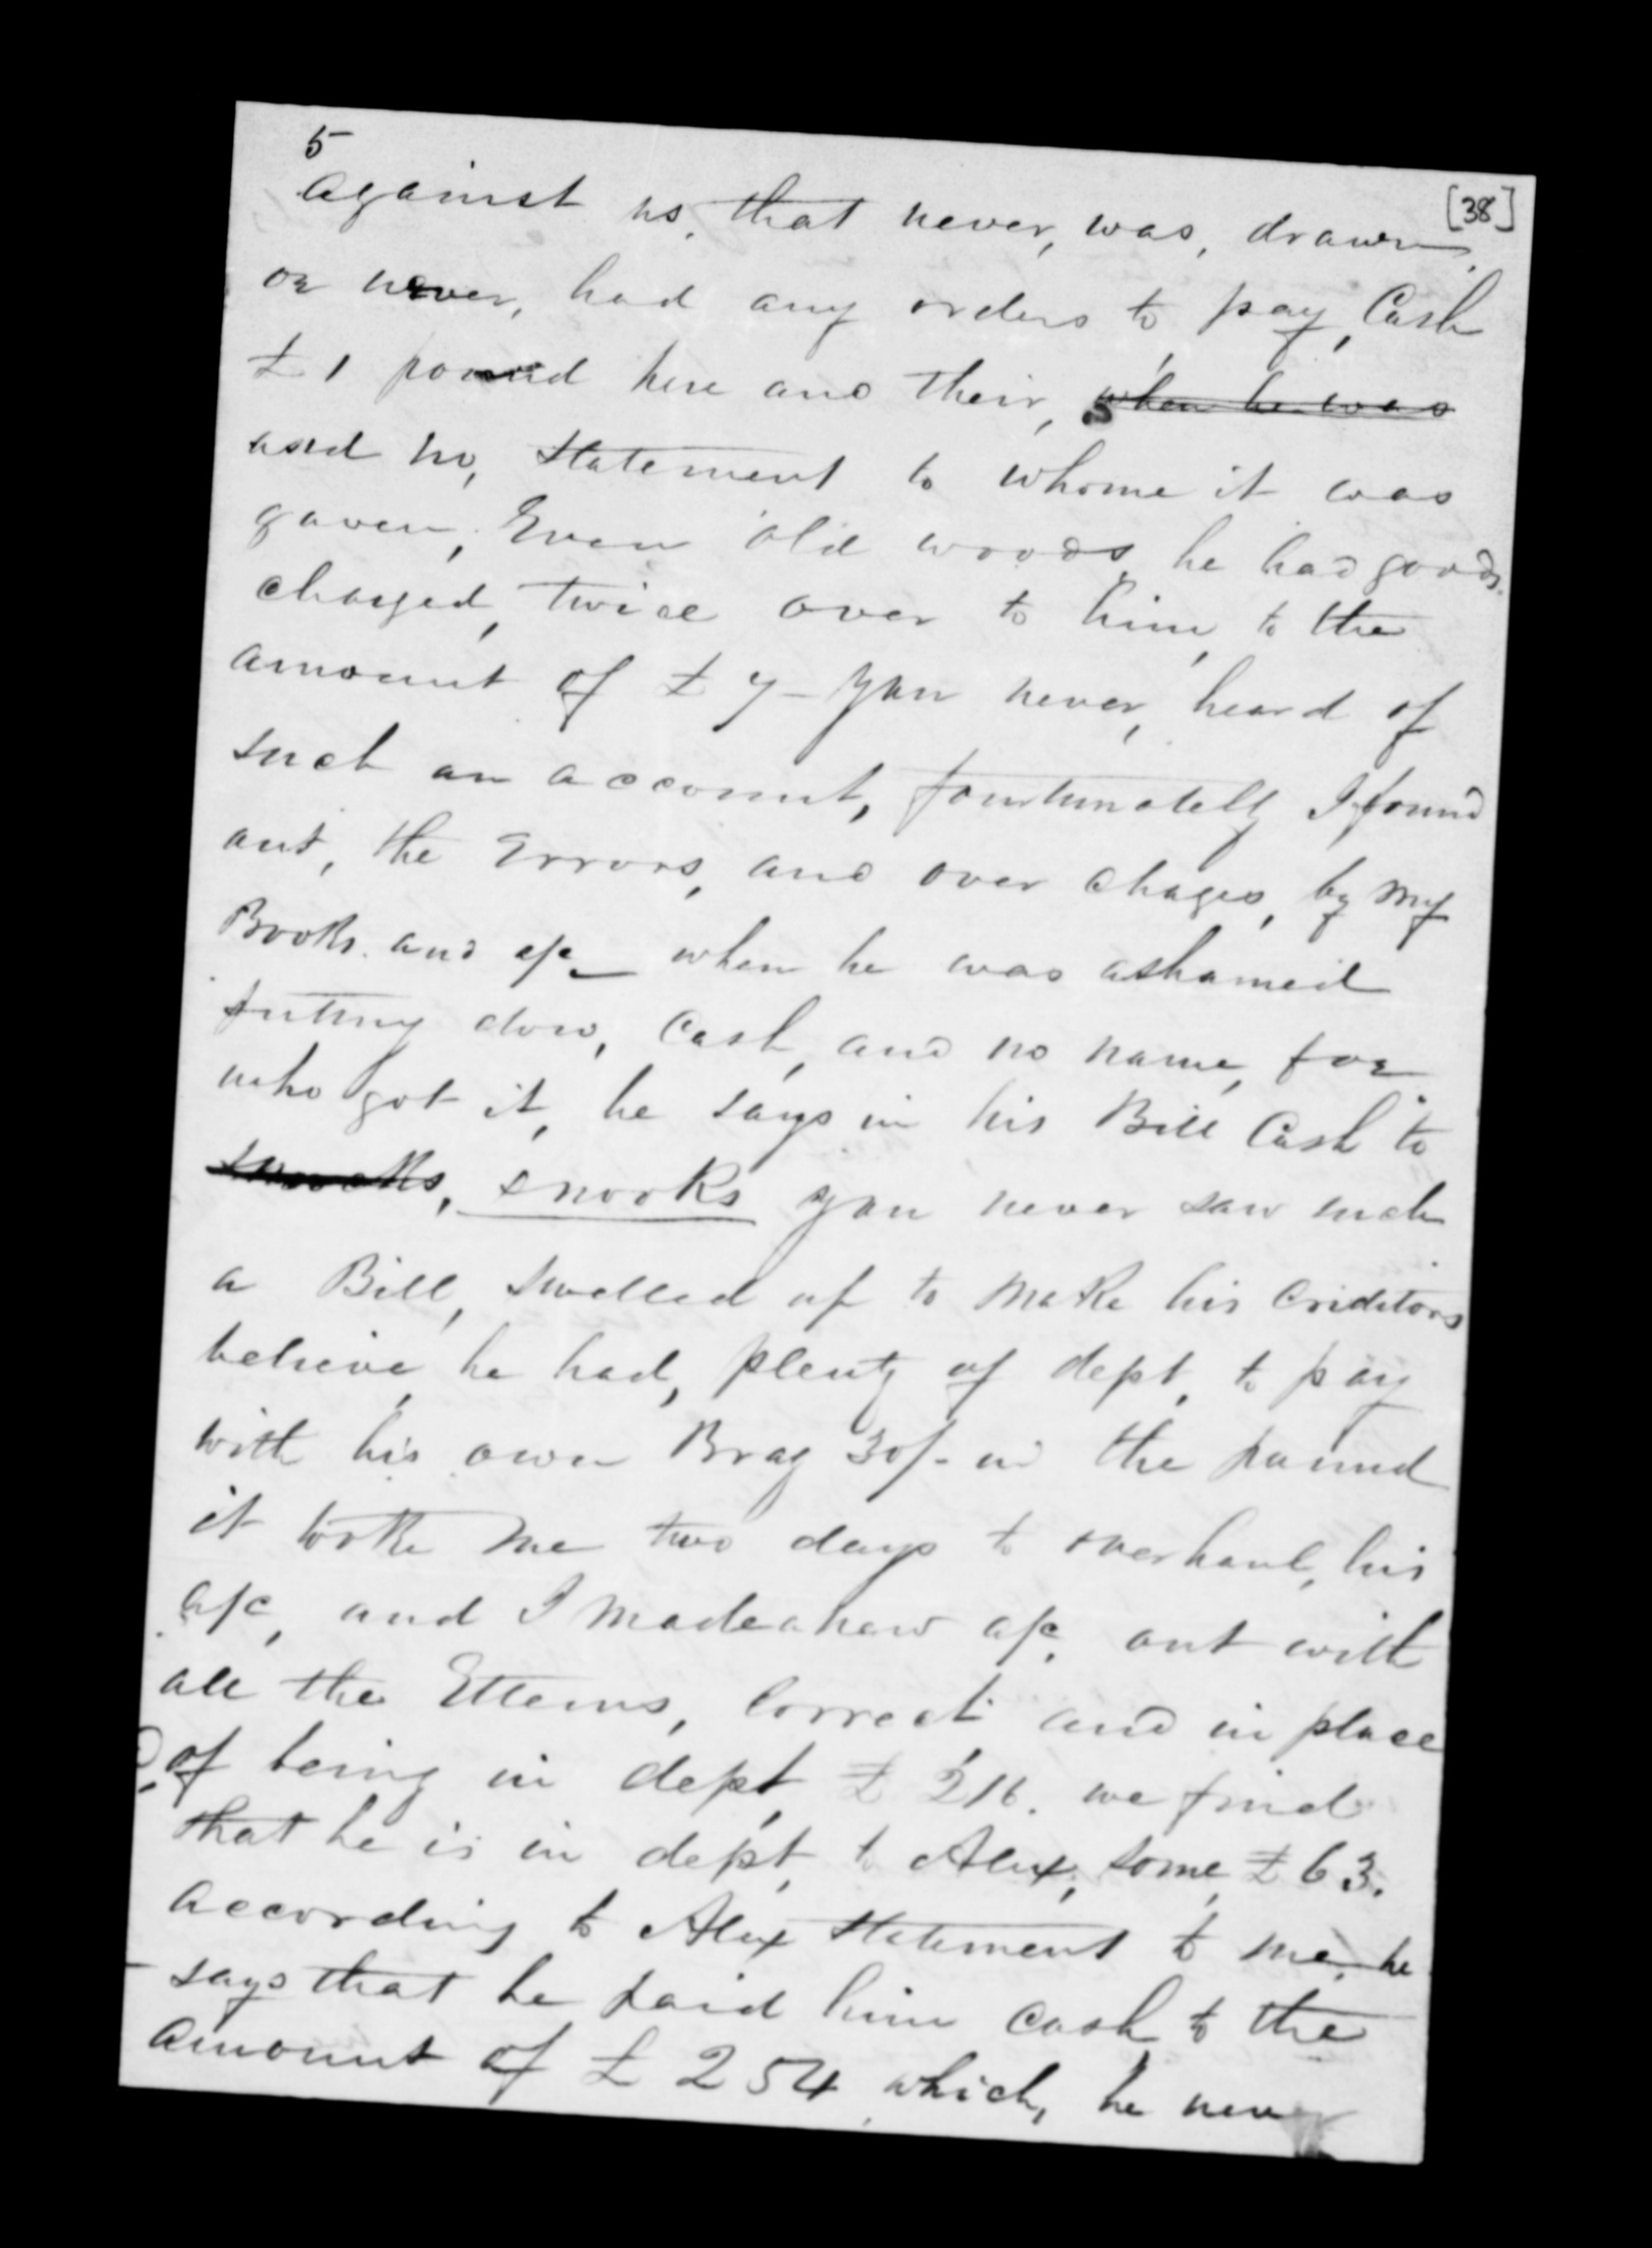 5
[38]
against us, that never, was, drawn,
or never, had any orders to, pay, Cash
£1 pound here and their, when he was
and no, Statement to whome it was
gaven, Even old woods, he had goods,
charged, twice over to him, to the
amount of £7 - you never, heard of
such an account, fourtunatelly I found
out, the Errors, and over chages, by my
Books. and a/c when he was ashamed
putting dow, Cash, and no name, for
who got it, he says in his Bill Cash to
snooks, snooks you never saw such
a Bill, swelled up to make his Criditors
believe, he had, plenty of dept, to pay
with his own Brag 30/- in the pound
it tooke me two days to overhaul, his
a/c, and I made a new a/c, out with
all the Ettems, Correct, and in place
of being in dept, £216. we find
that he is in dept, to Alex, some, £63.
according to Alex Statement to me, he
says that he paid him Cash, to the
amount of £254 which, he never